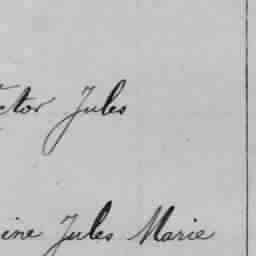 ctor Jules
ine Jules Marie